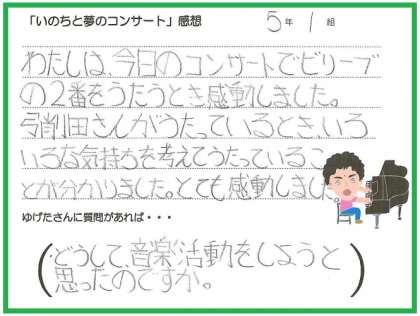 「いのちと夢のコンサート」感想 5年 1組
わたしは、今日のコンサートでビリーブ
の2番をうたうとき感動しました。
弓削田さんがうたっているとき、いろ
いろな気持ちを考えてうたっているこ
とが分かりました。とても感動しまし
ゆげたさんに質問があれば・・・
(どうして、音楽活動をしようと
思ったのですか。)